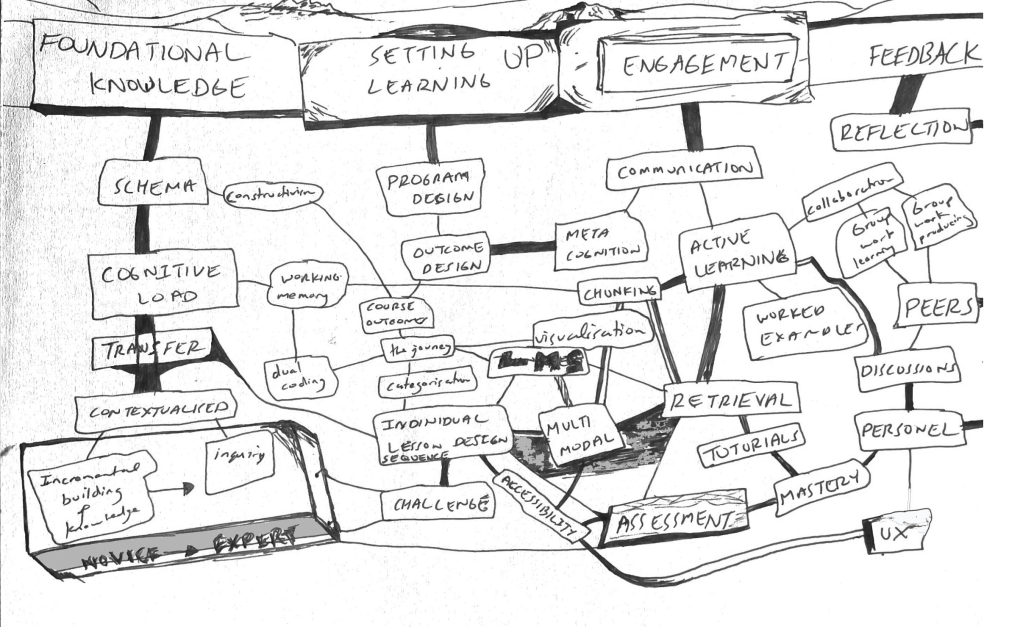 FOUNDATIONAL
KNOWLEDGE
SETTING UP
LEARNING
ENGAGEMENT
FEEDBACK
REFLECTION
SCHEMA
Constructivism
PROGRAM
DESIGN
COMMUNICATION
collaboration
Group
work
learning
Group
work
producing
OUTCOME
DESIGN
META
COGNITION
ACTIVE
LEARNING
COGNITIVE
LOAD
WORKING
memory
CHUNKING
COURSE
OUTCOME
WORKED
EXAMPLES
PEERS
TRANSFER
the journey
visualisation
LMS
dual
coding
categorisation
DISCUSSIONS
CONTEXTUALISED
INDIVIDUAL
LESSON DESIGN
SEQUENCE
MULTI
MODAL
RETRIEVAL
TUTORIALS
PERSONEL
Incremental
building
of
knowledge
inquiry
CHALLENGE
ACCESSIBILITY
ASSESSMENT
MASTERY
UX
NOVICE → EXPERT